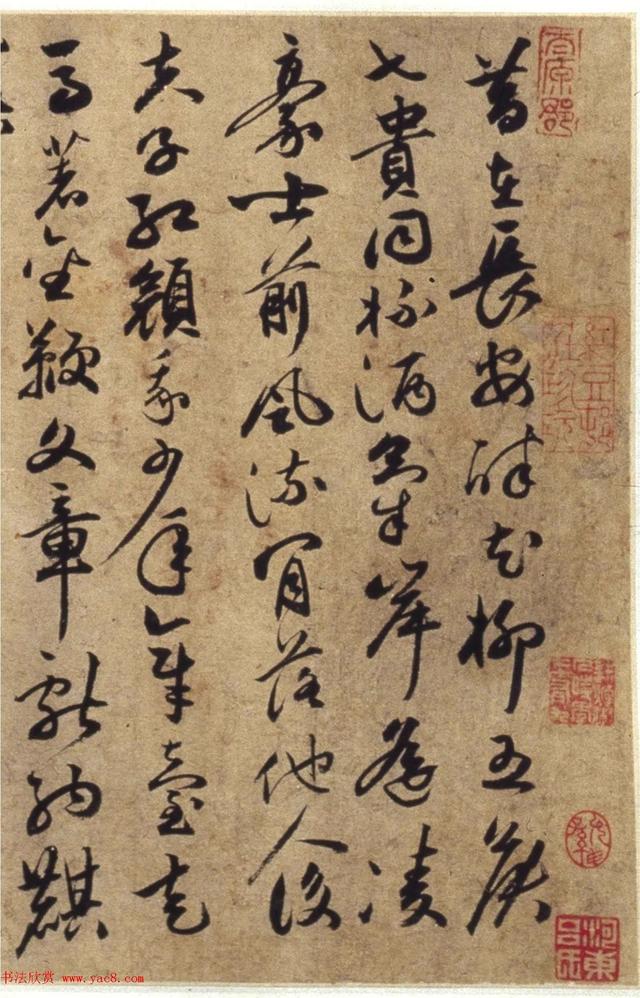 太原郡
昔在長安醉花柳五侯
七貴同杯酒氣岸遙凌
豪士前風流肯落他人後
夫子紅顏我少年章臺走
馬著金鞭文章獻納麒
河東
书法欣赏 www.yac8.com